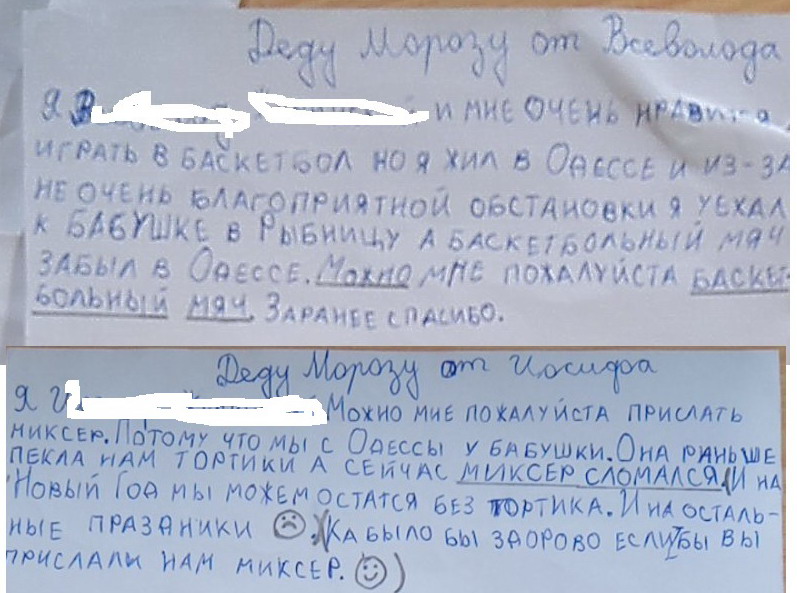 Деду Морозу от Всеволода
Я И МНЕ ОЧЕНЬ НРАВИТСЯ
ИГРАТЬ В БАСКЕТБОЛ НО Я ЖИЛ В ОДЕССЕ И ИЗ-ЗА
НЕ ОЧЕНЬ БЛАГОПРИЯТНОЙ ОБСТАНОВКИ Я УЕХАЛ
К БАБУШКЕ В РЫБНИЦУ А БАСКЕТБОЛЬНЫЙ МЯЧ
ЗАБЫЛ В ОДЕССЕ. МОЖНО МНЕ ПОЖАЛУЙСТА БАСКЕТ-
БОЛЬНЫЙ МЯЧ. ЗАРАНЕЕ СПАСИБО.
Деду Морозу от Иосифа
Я И МОЖНО МНЕ ПОЖАЛУЙСТА ПРИСЛАТЬ
МИКСЕР. ПОТОМУ ЧТО МЫ С ОДЕССЫ У БАБУШКИ. ОНА РАНЬШЕ
ПЕКЛА НАМ ТОРТИКИ А СЕЙЧАС МИКСЕР СЛОМАЛСЯ И НА
НОВЫЙ ГОД МЫ МОЖЕМ ОСТАТСЯ БЕЗ ТОРТИКА. И НА ОСТАЛЬ-
НЫЕ ПРАЗДНИКИ ☹. КА БЫЛО БЫ ЗДОРОВО ЕСЛИ БЫ ВЫ
ПРИСЛАЛИ НАМ МИКСЕР. ☺)